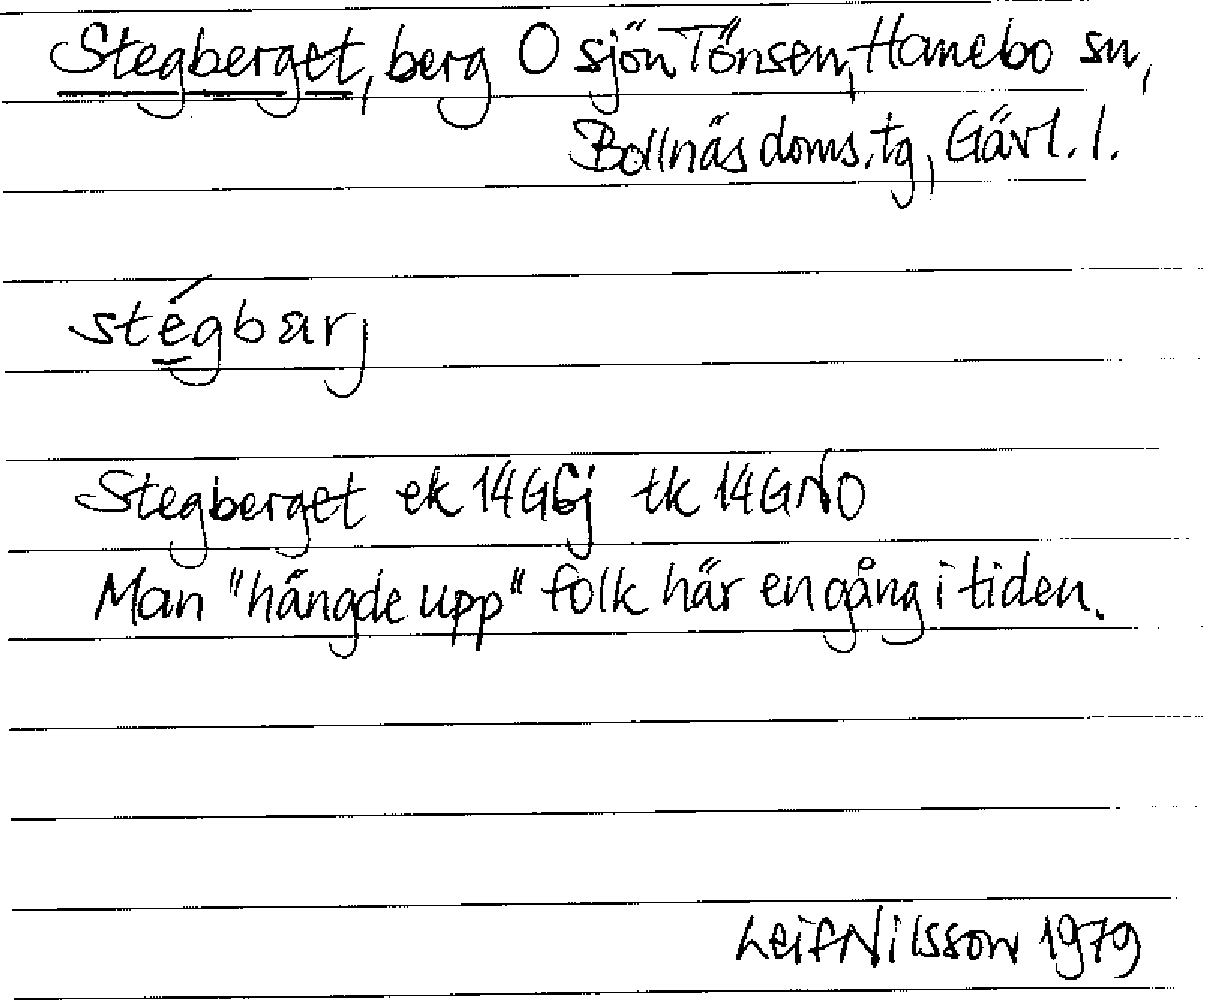 Stegberget, berg O sjön Tönsen, Hanebo sn,
Bollnäs doms.tg, Gävl. l.
stégbærj
Stegberget ek 14G6j tk 14GNO
Man "hängde upp" folk här en gång i tiden.
Leif Nilsson 1979